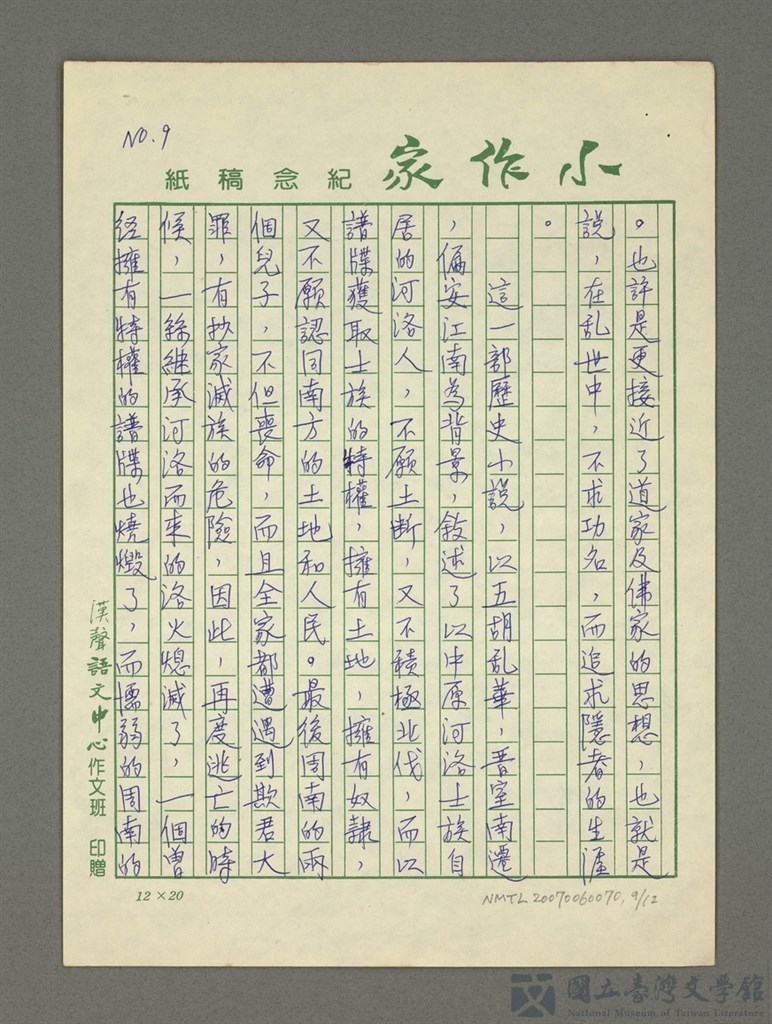 NO. 9
小作家 紀念稿紙
。也許是更接近了道家及佛家的思想，也就是
說，在乱世中，不求功名，而追求隱者的生涯
。
這一部歷史小說，以五胡乱華，晋室南遷
，偏安江南為背景，敘述了以中原河洛士族自
居的河洛人，不願土断，又不積極北伐，而以
譜牒獲取士族的特權，擁有土地，擁有奴隸，
又不願認同南方的土地和人民。最後周南的兩
個兒子，不但喪命，而且全家都遭遇到欺君大
罪，有抄家滅族的危險，因此，再度逃亡的時
候，一絲继承河洛而來的洛火熄滅了，一個曾
经擁有特權的譜牒也燒燬了，而懦弱的周南的
漢聲語文中心作文班 印贈
12×20
NMTL 20070060070, 9/12
國立臺灣文學館
National Museum of Taiwan Literature